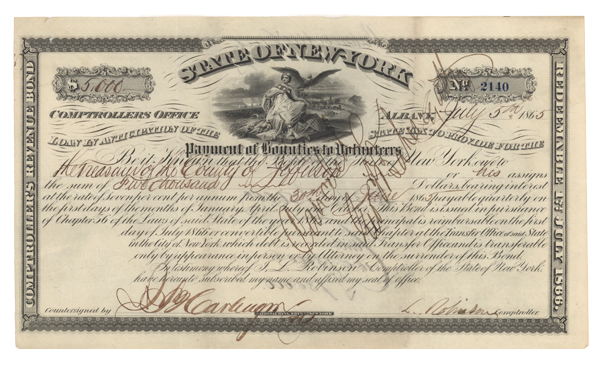 STATE OF NEW-YORK
$5,000
No. 2140
COMPTROLLERS OFFICE
ALBANY July 5th 1865
LOAN IN ANTICIPATION OF THE
STATE TAX TO PROVIDE FOR THE
Payment of Bounties to Volunteers
Be it Known that the State of New York owe to
the Treasurer of the County of Jefferson or his assigns
the sum of Five Thousand Dollars, bearing interest
at the rate of seven per cent per annum from the 30th day of June 1865 payable quarterly on
the first days of the months of January, April, July This Bond is issued in pursuance
of Chapter 56 of the Laws of said State of the on the first
day of July 1866 or convertible at the Transfer Office of said State
in the City of New York, which debt is recorded in said Transfer Office and is transferable
only by appearance in person or by Attorney on the surrender of this Bond.
In testimony whereof I, L. Robinson Comptroller of the State of New York,
have hereunto subscribed my name and affixed my seal of office.
Countersigned by
L. Robinson Comptroller
COMPTROLLER'S REVENUE BOND
REDEEMABLE 1st JULY 1866.